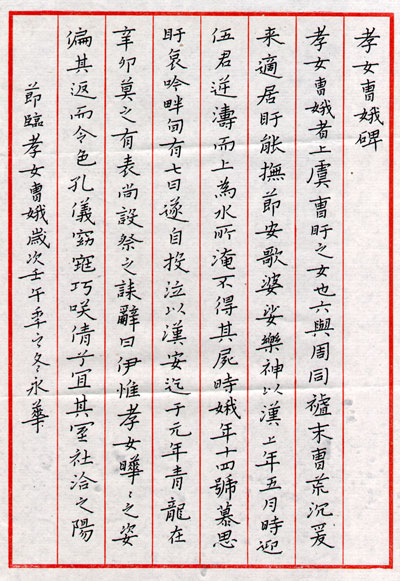 孝女曹娥碑
孝女曹娥者上虞曹盱之女也六與周同末曹荒沉爰
来適居盱能撫節安歌婆娑樂神以漢上年五月時迎
伍君逆濤而上為水所淹不得其屍時娥年十四號慕思
盱哀吟畔旬有七日遂自投泣以漢安迄于元年青龍在
辛卯莫之有表尚設祭之誄辭曰伊惟孝女曄〻之姿
偏其返而令色孔儀窈窕巧咲倩兮宜其室社洽之陽
節臨孝女曹娥歲次壬午季之冬永華